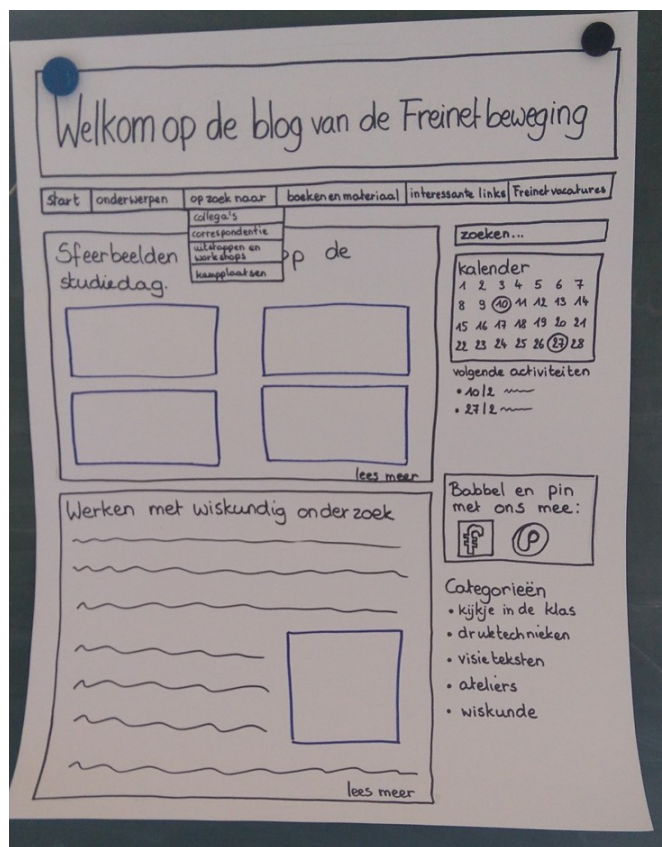 Welkom op de blog van de Freinetbeweging
start onderwerpen op zoek naar boeken en materiaal interessante links Freinetvacatures
collega's
correspondentie
uitstappen en
workshops
kampplaatsen
Sfeerbeelden op de
studiedag.
lees meer
Werken met wiskundig onderzoek
lees meer
zoeken...
kalender
1 2 3 4 5 6 7
8 9 10 11 12 13 14
15 16 17 18 19 20 21
22 23 24 25 26 27 28
volgende activiteiten
• 10/2
• 27/2
Babbel en pin
met ons mee:
f P
Categorieën
• kijkje in de klas
• druktechnieken
• visieteksten
• ateliers
• wiskunde